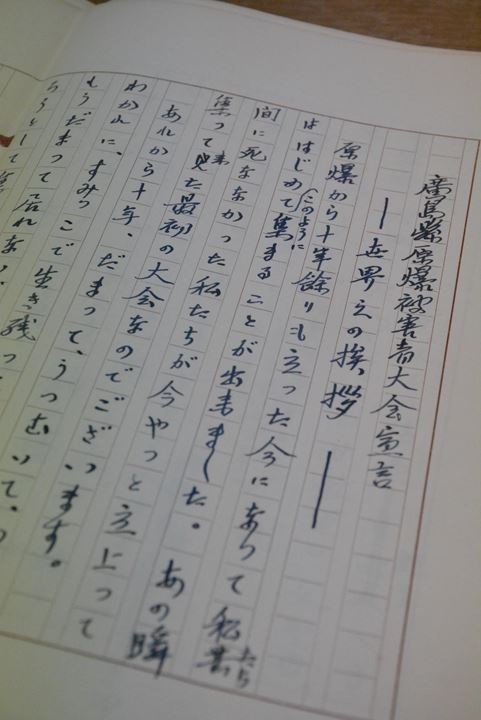 廣島縣原爆被害者大会宣言
― 世界えの挨拶 ―
原爆から十年餘りも立った今になって私共たち
ははじめてこのように集まることが出来ました。あの瞬
間に死ななかった私たちが今やっと立上って
集って来た最初の大会なのでございます。
あれから十年、だまって、うつむいて、
わかれに、すみっこで生き残っ
もうだまって居れない
らうとして